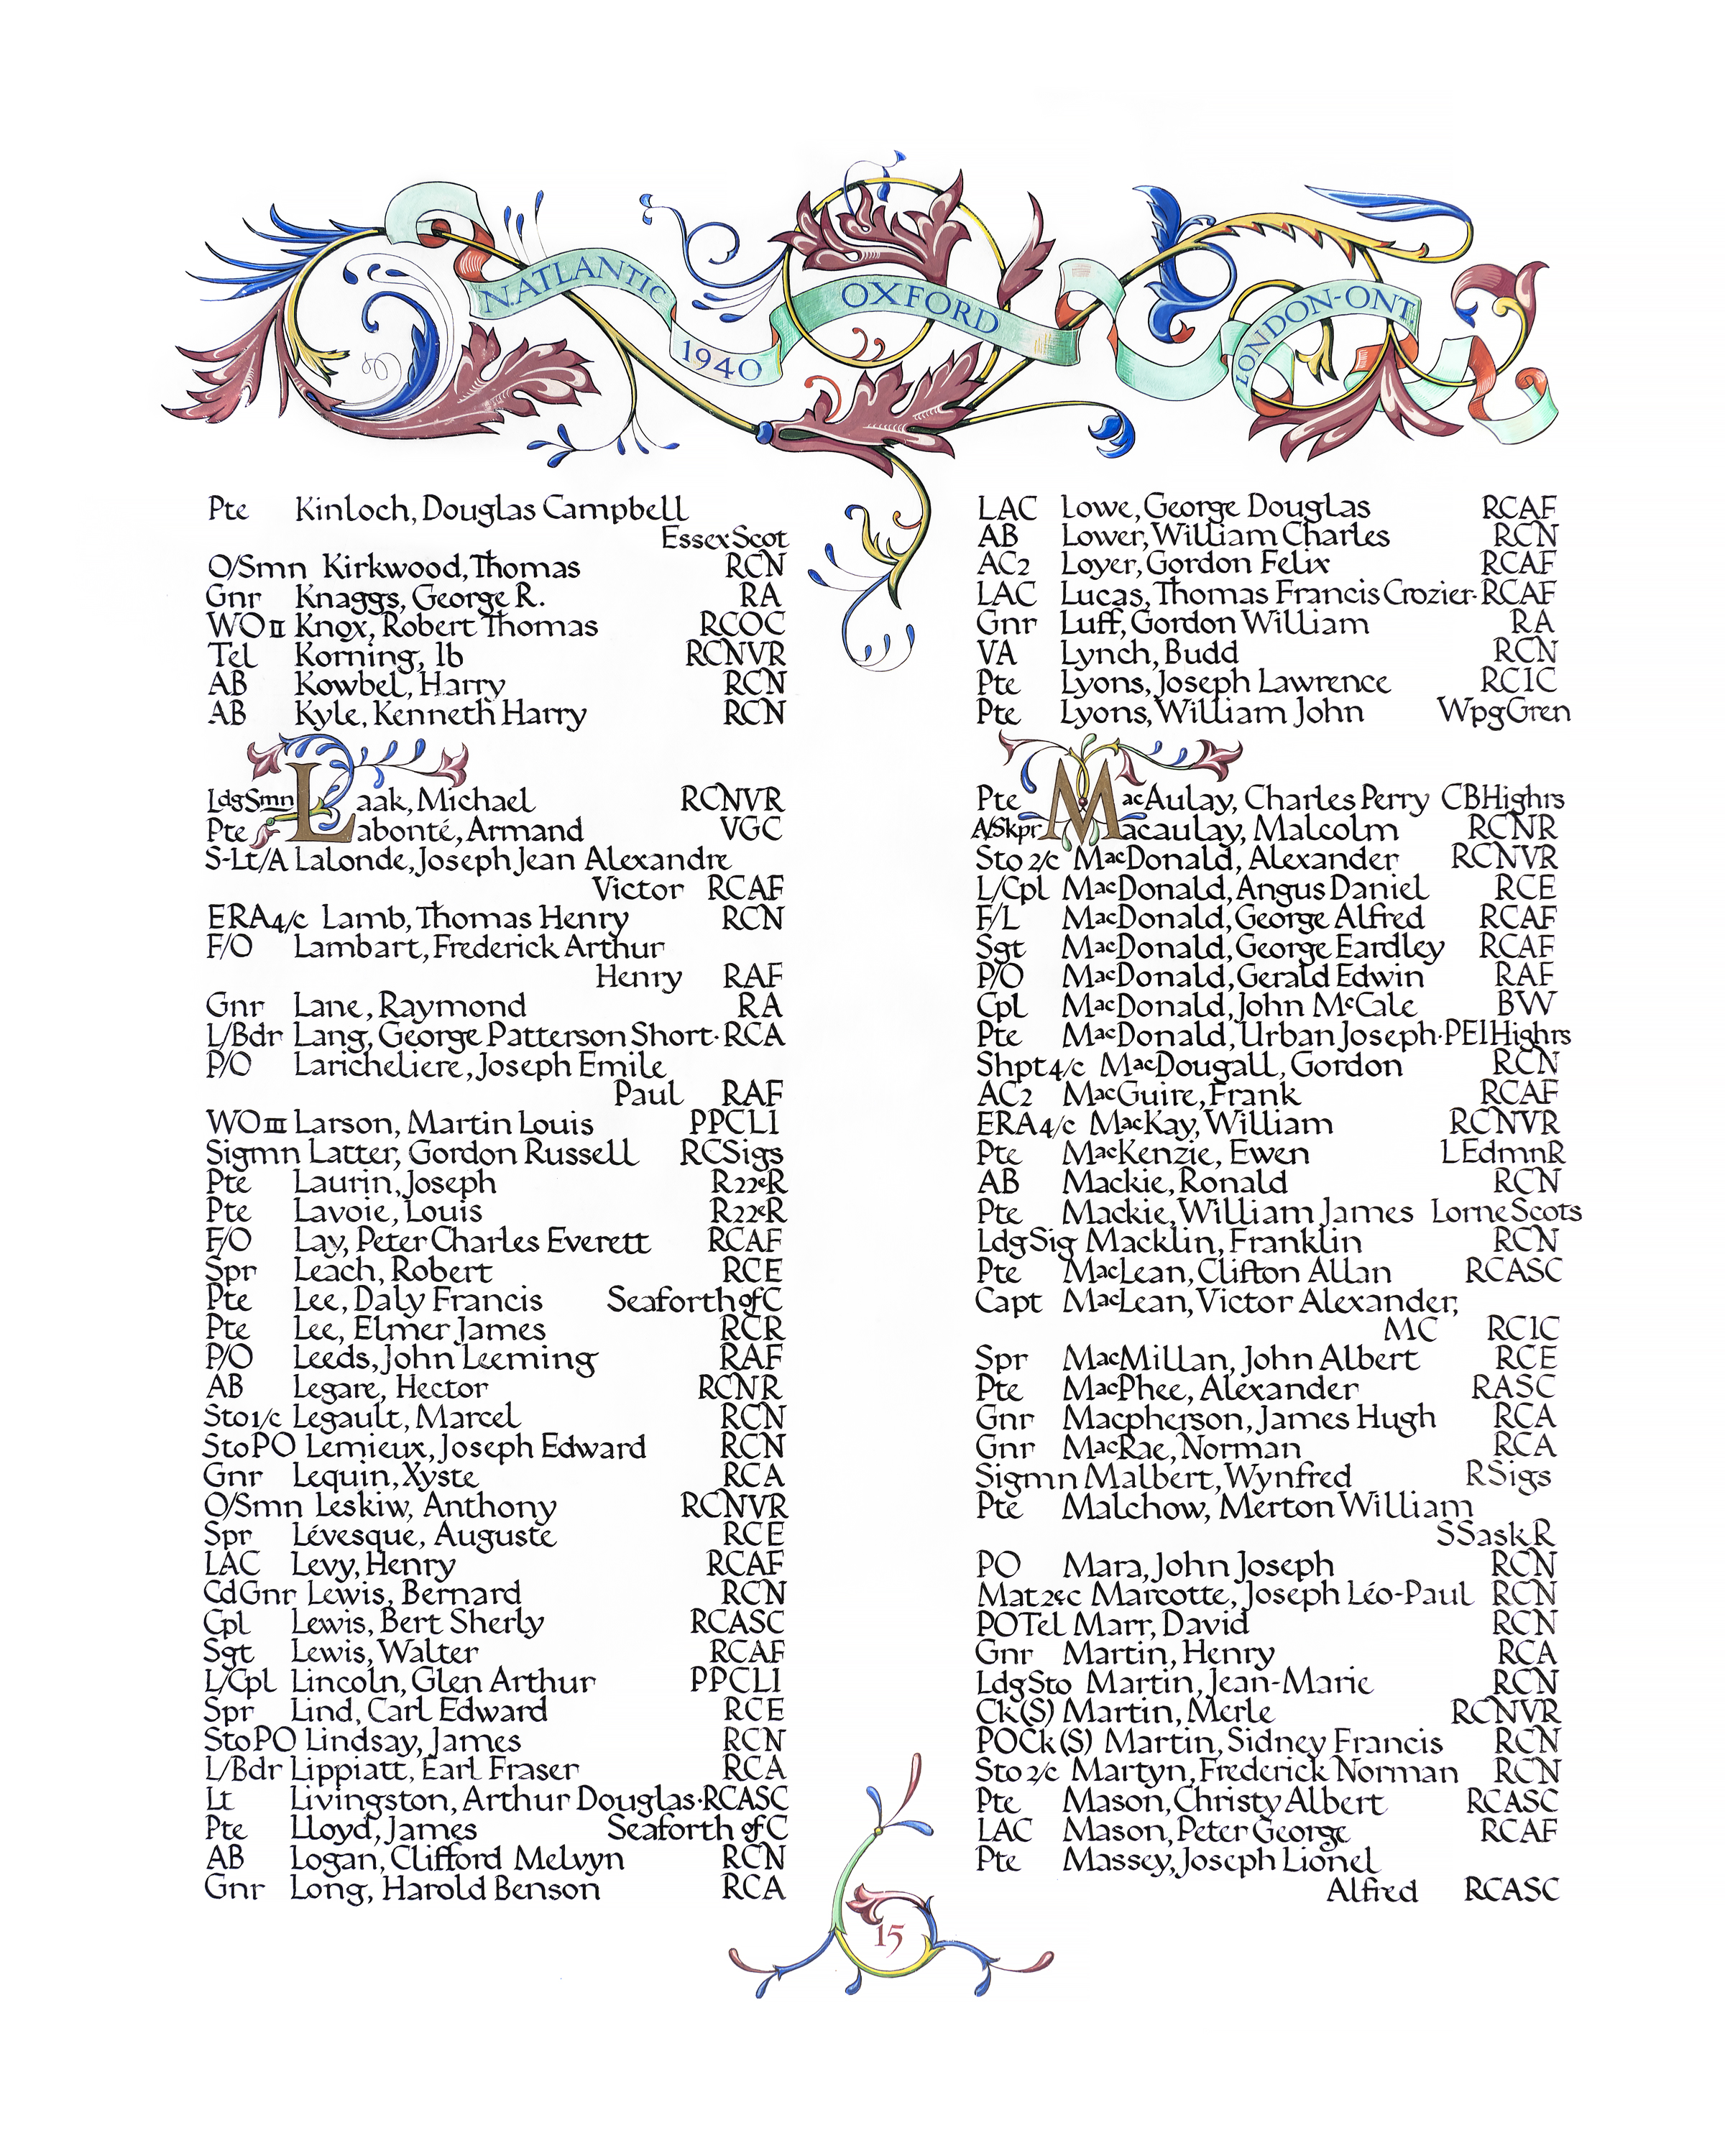 N.ATLANTIC
1940
OXFORD
LONDON-ONT
Pte Kinloch, Douglas Campbell
EssexScot
O/Smn Kirkwood, Thomas RCN
Gnr Knaggs, George R. RA
WO II Knox, Robert Thomas RCOC
Tel Korning, Ib RCNVR
AB Kowbel, Harry RCN
AB Kyle, Kenneth Harry RCN
LdgSmn Laak, Michael RCNVR
Pte Labonté, Armand VGC
S-Lt/A Lalonde, Joseph Jean Alexandre
Victor RCAF
ERA4/c Lamb, Thomas Henry RCN
F/O Lambart, Frederick Arthur
Henry RAF
Gnr Lane, Raymond RA
L/Bdr Lang, George Patterson Short·RCA
P/O Laricheliere, Joseph Emile
Paul RAF
WO III Larson, Martin Louis PPCLI
Sigmn Latter, Gordon Russell RCSigs
Pte Laurin, Joseph R22eR
Pte Lavoie, Louis R22eR
F/O Lay, Peter Charles Everett RCAF
Spr Leach, Robert RCE
Pte Lee, Daly Francis Seaforth of C
Pte Lee, Elmer James RCR
P/O Leeds, John Leeming RAF
AB Legare, Hector RCNR
Sto1/c Legault, Marcel RCN
StoPO Lemieux, Joseph Edward RCN
Gnr Lequin, Xyste RCA
O/Smn Leskiw, Anthony RCNVR
Spr Lévesque, Auguste RCE
LAC Levy, Henry RCAF
CdGnr Lewis, Bernard RCN
Cpl Lewis, Bert Sherly RCASC
Sgt Lewis, Walter RCAF
L/Cpl Lincoln, Glen Arthur PPCLI
Spr Lind, Carl Edward RCE
StoPO Lindsay, James RCN
L/Bdr Lippiatt, Earl Fraser RCA
Lt Livingston, Arthur Douglas·RCASC
Pte Lloyd, James Seaforth of C
AB Logan, Clifford Melvyn RCN
Gnr Long, Harold Benson RCA
LAC Lowe, George Douglas RCAF
AB Lower, William Charles RCN
AC2 Loyer, Gordon Felix RCAF
LAC Lucas, Thomas Francis Crozier·RCAF
Gnr Luff, Gordon William RA
VA Lynch, Budd RCN
Pte Lyons, Joseph Lawrence RCIC
Pte Lyons, William John WpgGren
Pte MacAulay, Charles Perry CBHighrs
A/Skpr Macaulay, Malcolm RCNR
Sto 2/c MacDonald, Alexander RCNVR
L/Cpl MacDonald, Angus Daniel RCE
F/L MacDonald, George Alfred RCAF
Sgt MacDonald, George Eardley RCAF
P/O MacDonald, Gerald Edwin RAF
Cpl MacDonald, John McCale BW
Pte MacDonald, Urban Joseph·PEIHighrs
Shpt4/c MacDougall, Gordon RCN
AC2 MacGuire, Frank RCAF
ERA4/c MacKay, William RCNVR
Pte MacKenzie, Ewen LEdmnR
AB Mackie, Ronald RCN
Pte Mackie, William James LorneScots
LdgSig Macklin, Franklin RCN
Pte MacLean, Clifton Allan RCASC
Capt MacLean, Victor Alexander,
MC RCIC
Spr MacMillan, John Albert RCE
Pte MacPhee, Alexander RASC
Gnr Macpherson, James Hugh RCA
Gnr MacRae, Norman RCA
Sigmn Malbert, Wynfred RSigs
Pte Malchow, Merton William
SSaskR
PO Mara, John Joseph RCN
Mat2ec Marcotte, Joseph Léo-Paul RCN
POTel Marr, David RCN
Gnr Martin, Henry RCA
LdgSto Martin, Jean-Marie RCN
Ck(S) Martin, Merle RCNVR
POCk(S) Martin, Sidney Francis RCN
Sto 2/c Martyn, Frederick Norman RCN
Pte Mason, Christy Albert RCASC
LAC Mason, Peter George RCAF
Pte Massey, Joseph Lionel
Alfred RCASC
15